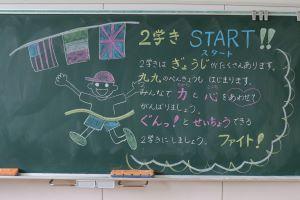 2学き START!!
スタート
2学きは ぎょうじ がたくさんあります。
九九のべんきょうも はじまります。
みんなで 力 と 心 をあわせて
がんばりましょう。
ぐんっ! と せいちょう できる
2学きにしましょう。 ファイト!